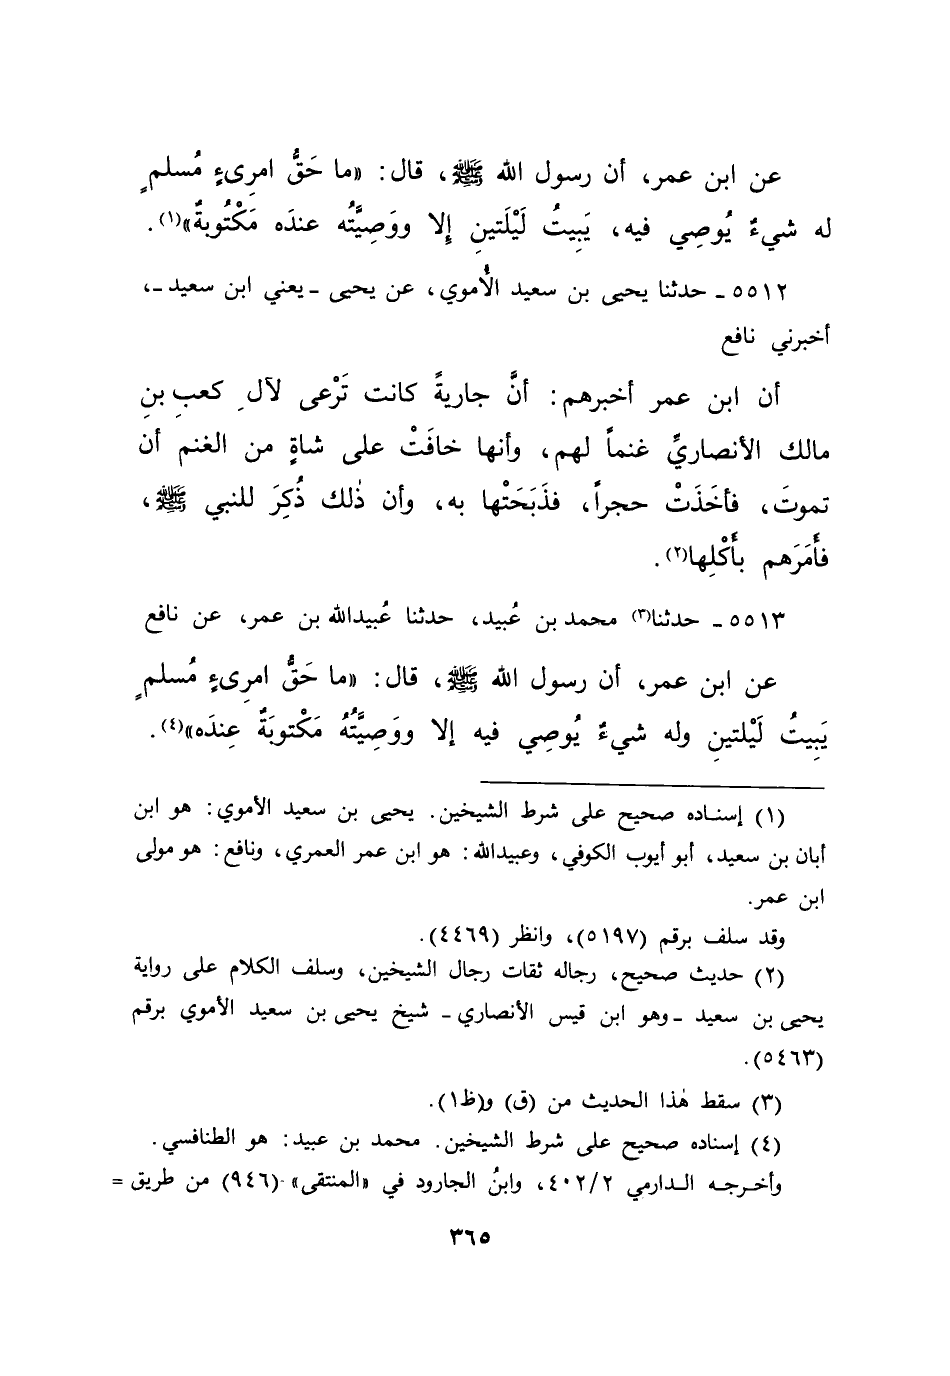 عن ابن عمر، أن رسول الله ﷺ، قال: «ما حَقُّ امرِىءٍ مُسلمٍ
له شيءٌ يُوصِي فيه، يَبِيتُ لَيْلَتينِ إِلا ووَصِيَّتُه عندَه مَكْتُوبةٌ»(١).
٥٥١٢ ـ حدثنا يحيى بن سعيد الأُموي، عن يحيى ـ يعني ابن سعيد ـ،
أخبرني نافع
أن ابن عمر أخبرهم: أنَّ جاريةً كانت تَرْعى لآلِ كعبِ بنِ
مالك الأنصاريِّ غنماً لهم، وأنها خافَتْ على شاةٍ من الغنم أن
تموتَ، فأخَذَتْ حجراً، فذَبَحَتْها به، وأن ذٰلك ذُكِرَ للنبي ﷺ،
فأَمَرَهم بأَكْلِها(٢).
٥٥١٣ ـ حدثنا(٣) محمد بن عُبيد، حدثنا عُبيدالله بن عمر، عن نافع
عن ابن عمر، أن رسول الله ﷺ، قال: «ما حَقُّ امرِىءٍ مُسلمٍ
يَبِيتُ لَيْلتينِ وله شيءٌ يُوصِي فيه إلا ووَصِيَّتُهُ مَكْتوبَةٌ عِندَه»(٤).
(١) إسناده صحيح على شرط الشيخين. يحيى بن سعيد الأموي: هو ابن
أبان بن سعيد، أبو أيوب الكوفي، وعبيدالله: هو ابن عمر العمري، ونافع: هو مولى
ابن عمر.
وقد سلف برقم (٥١٩٧)، وانظر (٤٤٦٩).
(٢) حديث صحيح، رجاله ثقات رجال الشيخين، وسلف الكلام على رواية
يحيى بن سعيد ـ وهو ابن قيس الأنصاري ـ شيخ يحيى بن سعيد الأموي برقم
(٥٤٦٣).
(٣) سقط هٰذا الحديث من (ق) و(ظ١).
(٤) إسناده صحيح على شرط الشيخين. محمد بن عبيد: هو الطنافسي.
وأخرجه الدارمي ٤٠٢/٢، وابنُ الجارود في «المنتقى» (٩٤٦) من طريق =
٣٦٥